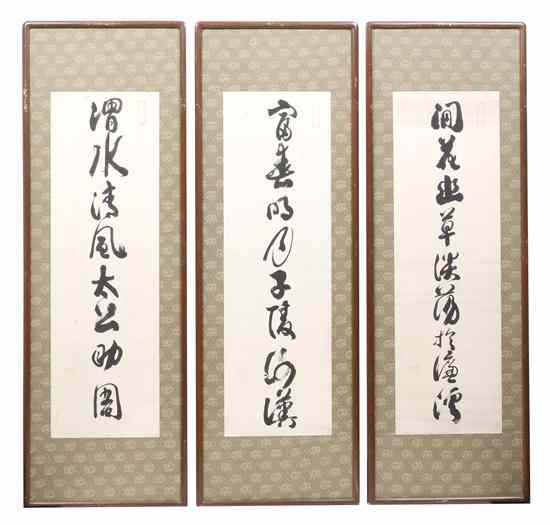 閒花幽草淡蕩於濂溪
富春明月子陵漢
渭水清風太公助周